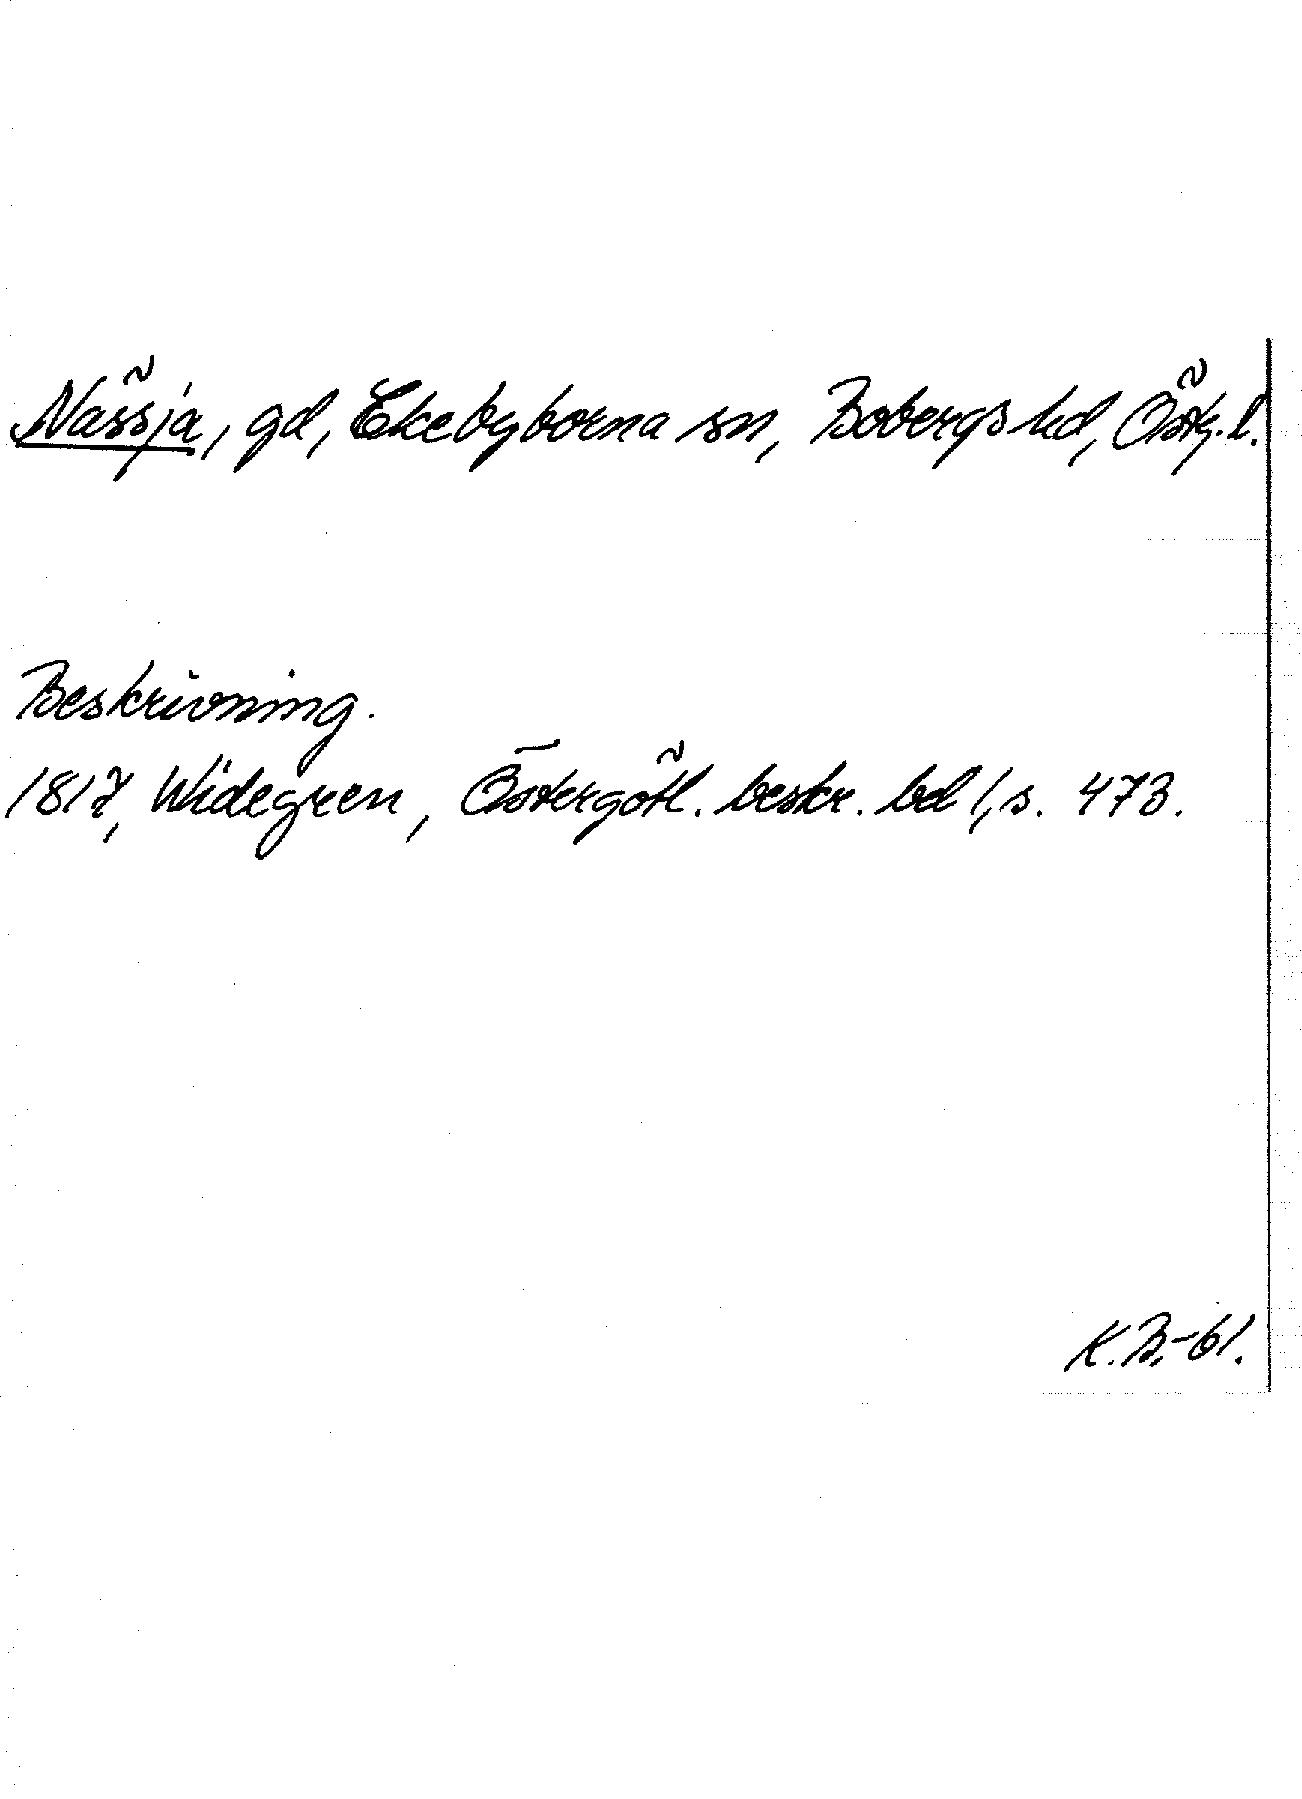 Nässja, gd, Ekebyborna sn, Bobergs hd, Östg. l.
Beskrivning.
1817, Widegren, Östergötl. beskr. bd 1, s. 473.
K.B.-61.